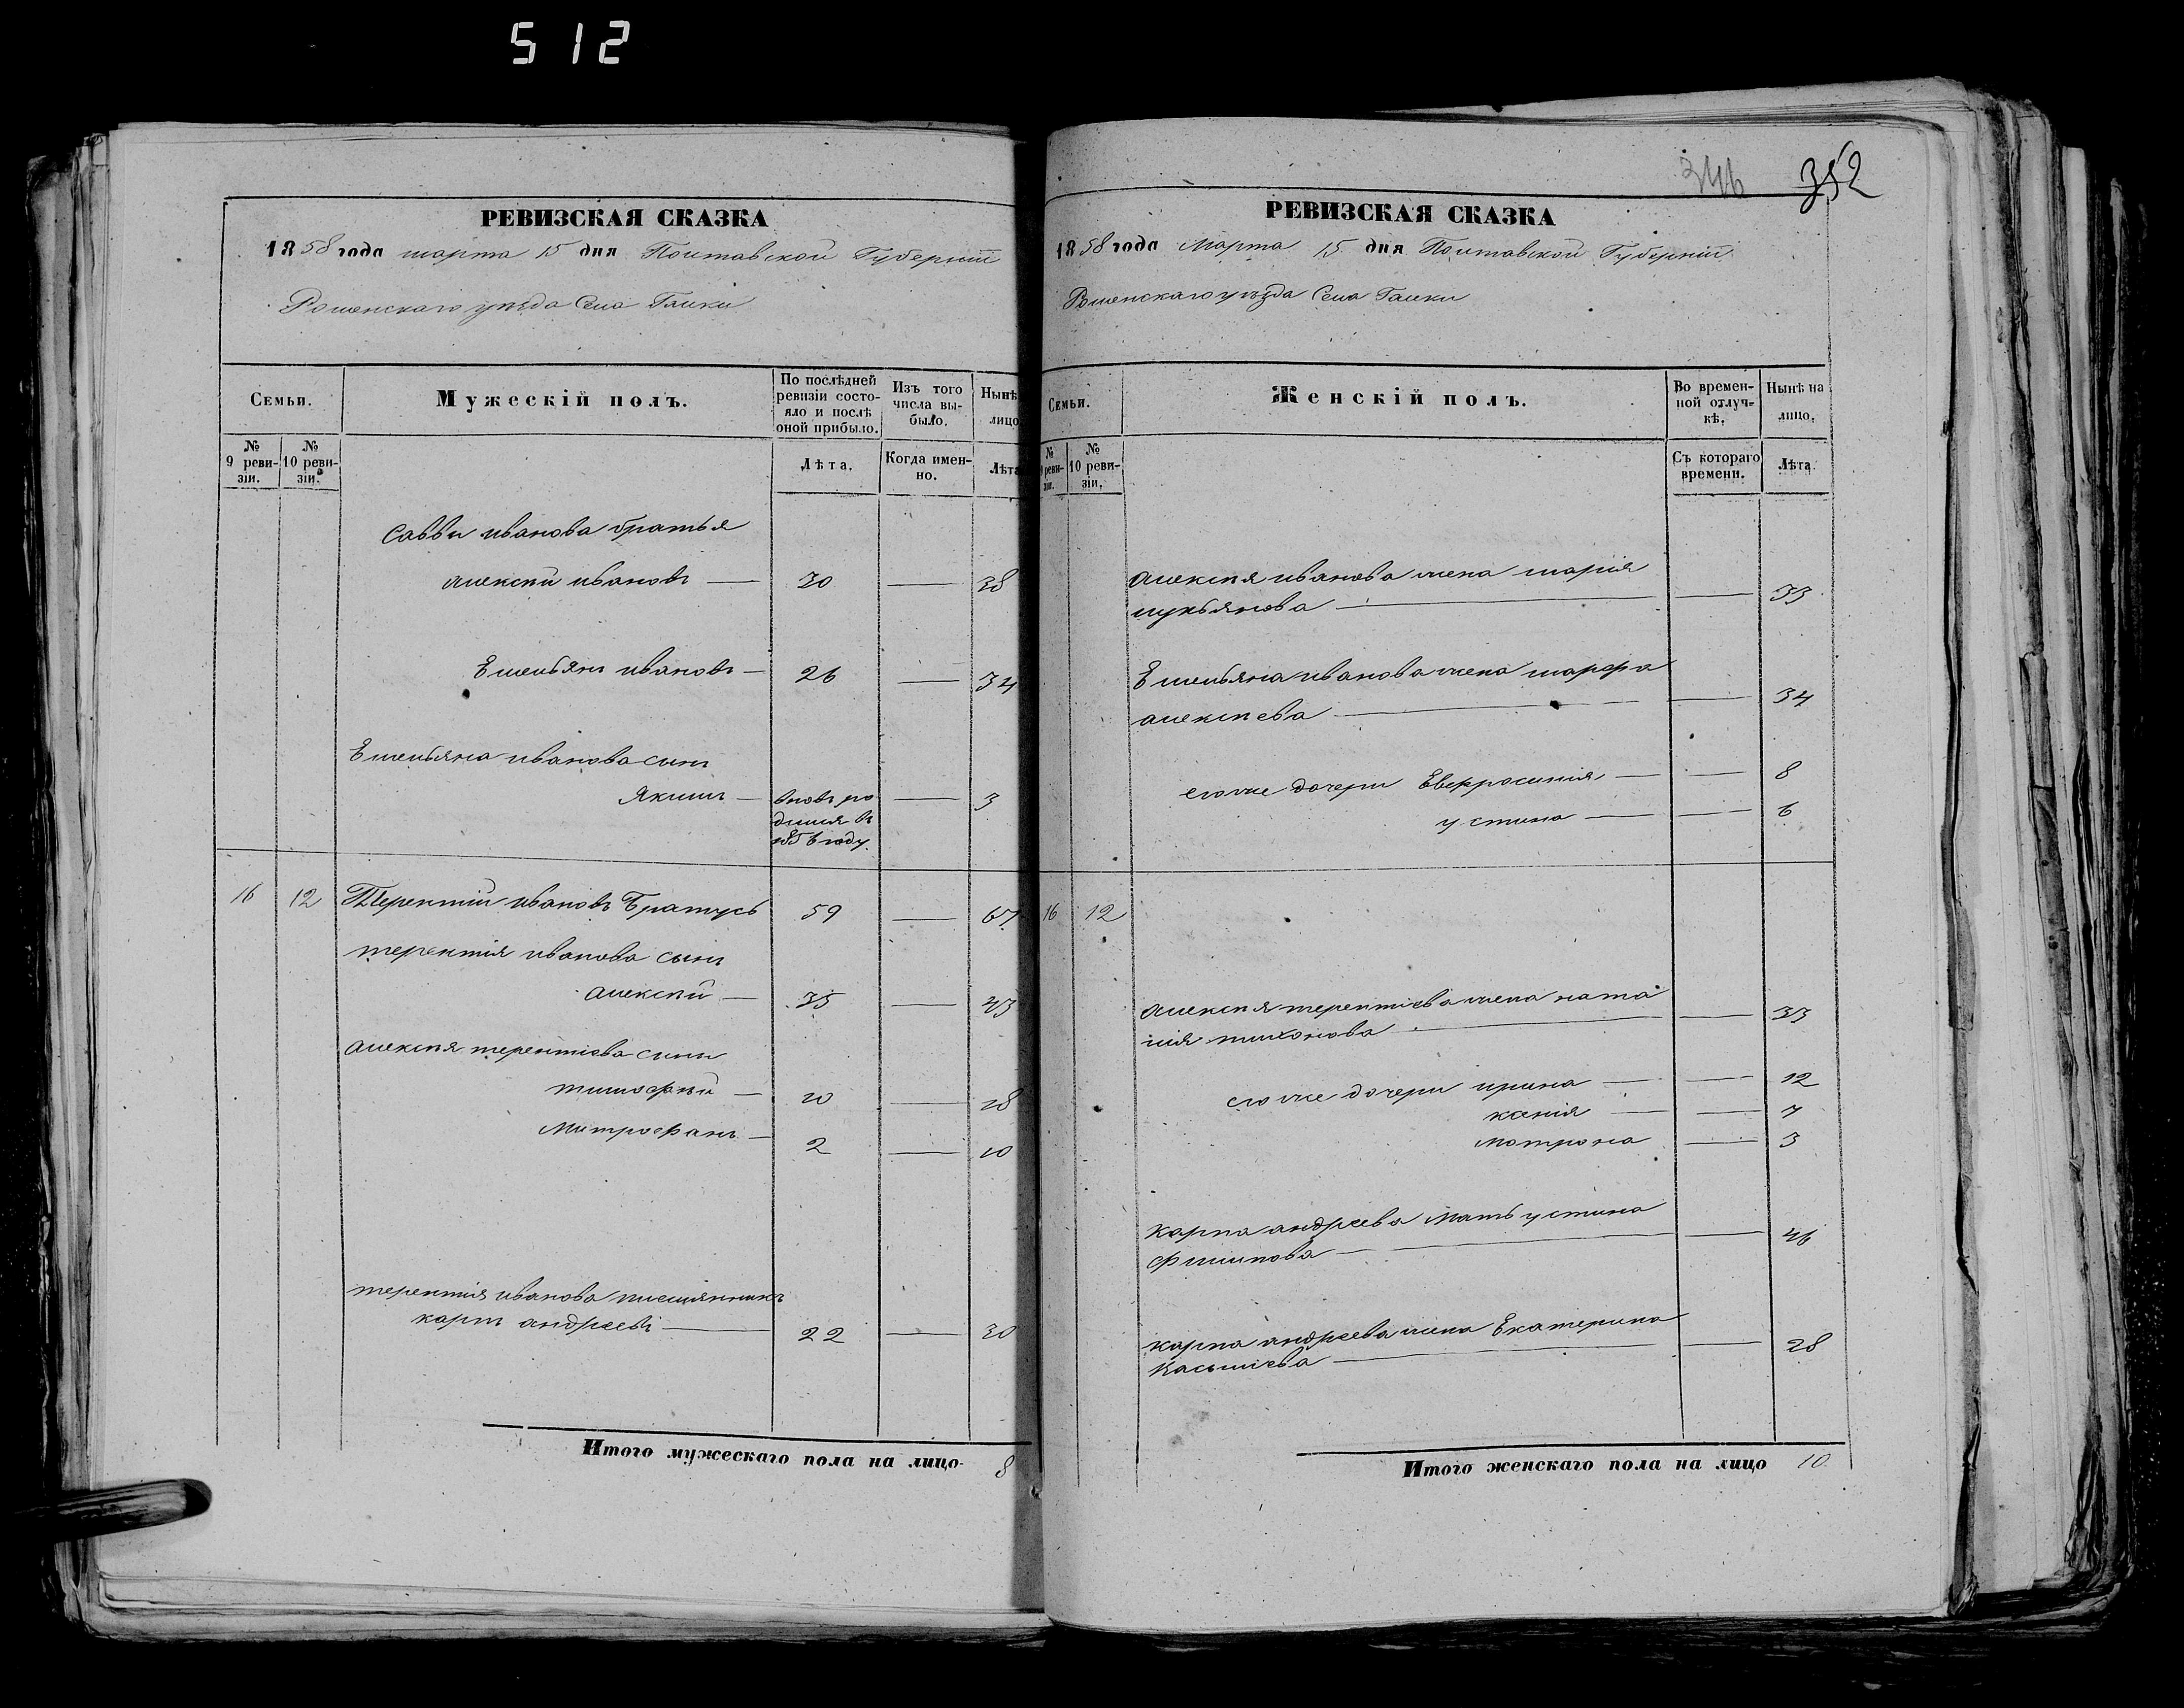 512
РЕВИЗСКАЯ СКАЗКА
1858 года марта 15 дня Полтавской Губерніи
Роменскаго уѣзда Села Галки
Семьи.
Мужескій полъ.
По послѣдней ревизіи состояло и послѣ оной прибыло.
Изъ того числа выбыло.
Нынѣ
лицо
№ 9 ревизіи.
№ 10 ревизіи.
Лѣта.
Когда именно.
Лѣта
Саввы иванова братья
алексѣй ивановъ — 30 — 38
Емельянъ ивановъ — 26 — 34
Емельяна иванова сынъ
Якимъ — вновь ро — 3
году
16 12 Терентій ивановъ Братусь 59 — 67
терентія иванова сынъ
алексѣй — 35 — 43
алексѣя терентіева сыны
тимофѣй — 20 — 28
Митрофанъ — 2 — 10
терентія иванова племянникъ
карпъ андреевъ — 22 — 30
Итого мужескаго пола на лицо 8
346 352
РЕВИЗСКАЯ СКАЗКА
1858 года Марта 15 дня Полтавской Губерніи
Роменскаго уѣзда Села Галки
Семьи.
Женскій полъ.
Во временной отлучкѣ.
Нынѣ на лицо.
№ 9 ревизіи.
№ 10 ревизіи.
Съ котораго времени.
Лѣта.
алексѣя иванова жена марія
лукьянова — — 33
Емельяна иванова жена марфа
алексѣева — — 34
его же дочери Евфросинія — — 8
устина — — 6
16 12
алексѣя терентіева жена ната
лія тихонова — — 33
его же дочери ирина — — 12
ксенія — — 7
мотрона — 3
карпа андреева мать устина
филипова — — 46
карпа андреева жена Екатерина
— — 28
Итого женскаго пола на лицо 10